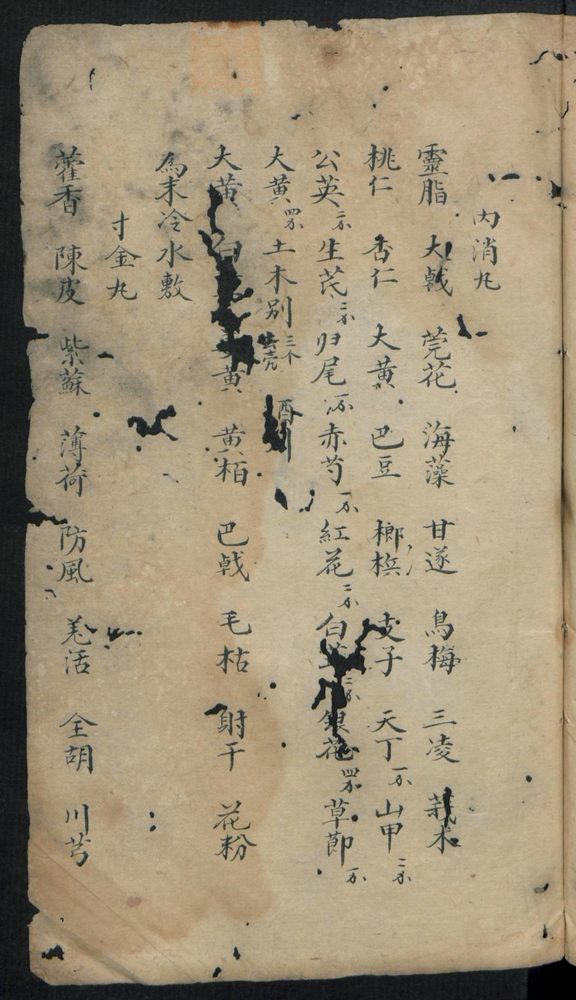 內消丸
靈脂 大戟 莞花 海藻 甘遂 鳥梅 三凌 莪朮
桃仁 杏仁 大黃 巴豆 榔槟 支子 天丁 山甲
公英 生芪 归尾 赤芍 紅花 白 銀花 草節
大黄 土木別 三个 去壳 酒
大黄 白 黄 黄栢 巴戟 毛枯 射干 花粉
為末冷水敷
寸金丸
藿香 陳皮 紫蘇 薄荷 防風 羌活 全胡 川芎